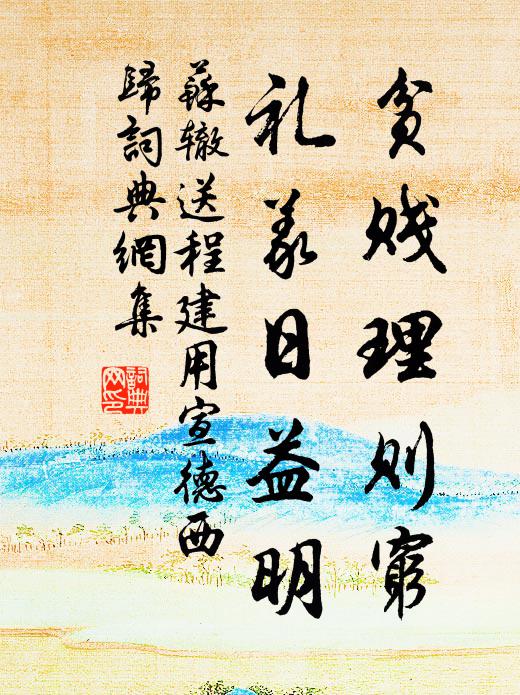 贫贱理则穷
礼义日益明
蘇辙送程建用宣德西
歸詞典網集
詞典网印